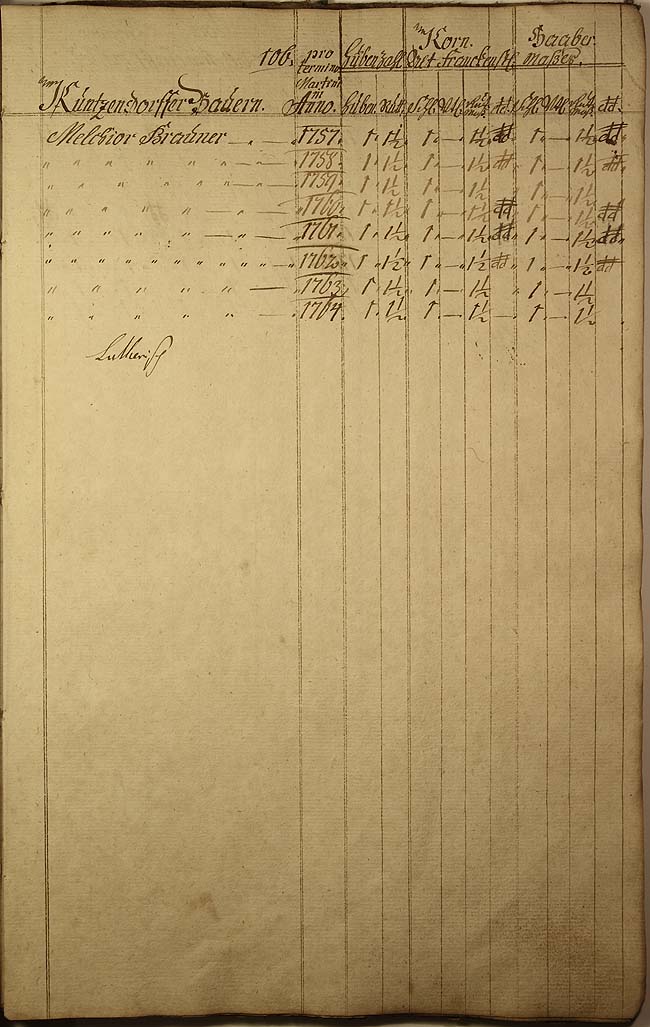 106. pro Korn. Haaber.
termino Hubenzahl Alt Franckenst. Maßes.
Martini
Küntzendorffer Bauern. Anno. Huben. Rutt.
Melchior Brauner — " — " 1757. 1 " 1½ 1 " — " 1½ dd 1 " — " 1½ dd
" " " " " — " — " 1758. 1 " 1½ 1 " — " 1½ dd 1 " — " 1½ dd
" " " " " — " — " 1759. 1 " 1½ 1 " — " 1½ 1 " — " 1½
" " " " " — " — " 1760. 1 " 1½ 1 " — " 1½ dd 1 " — " 1½ dd
" " " " " — " — " 1761. 1 " 1½ 1 " — " 1½ dd 1 " — " 1½ dd
" " " " " " " " " " " 1762. 1 " 1½ 1 " — " 1½ dd 1 " — " 1½ dd
" " " " " — " 1763. 1 " 1½ 1 " — " 1½ 1 " — " 1½
" " " " " — " 1764. 1 " 1½ 1 " — " 1½ 1 " — " 1½
Lutherisch